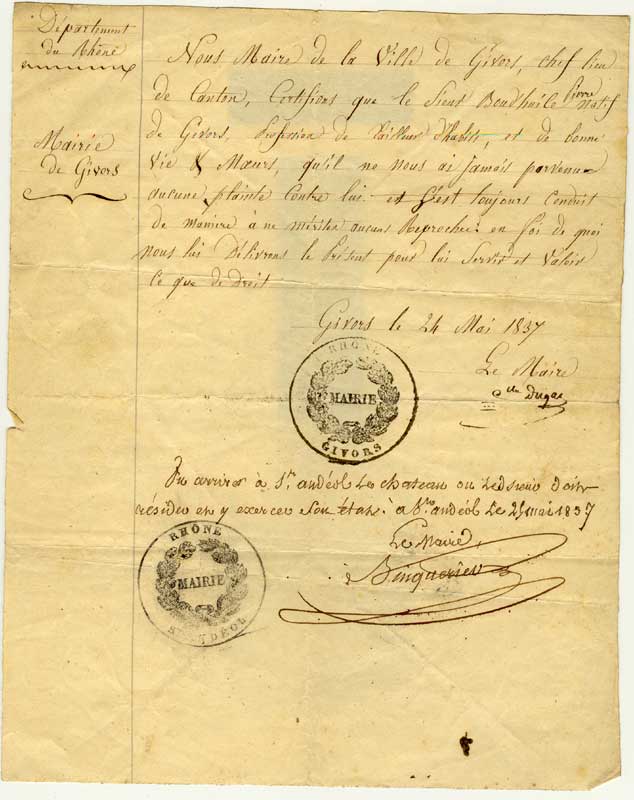 Département
du Rhône
Mairie
de Givors
Nous Maire de la Ville de Givors, chef lieu
de Canton, Certifions que le Sieur Boudhaile pierre natif
de Givors, Profession de tailleur d'habits, et de bonne
vie & Mœurs, qu'il ne nous ai jamais parvenue
aucune plainte contre lui. et s'est toujours conduit
de maniere à ne mérité aucuns Reproche: en foi de quoi
nous lui Délivrons le Présent pour lui Servir et Valoir
Ce que de droit
Givors le 24 Mai 1837
Le Maire
Dugas
RHÔNE
MAIRIE
GIVORS
Vu arriver à St. andéol Le chateau ou Ledsieur doit
résider en y exercer Son état. à St. andéol Le 25 mai 1837
Le Maire
RHÔNE
MAIRIE
ST ANDÉOL